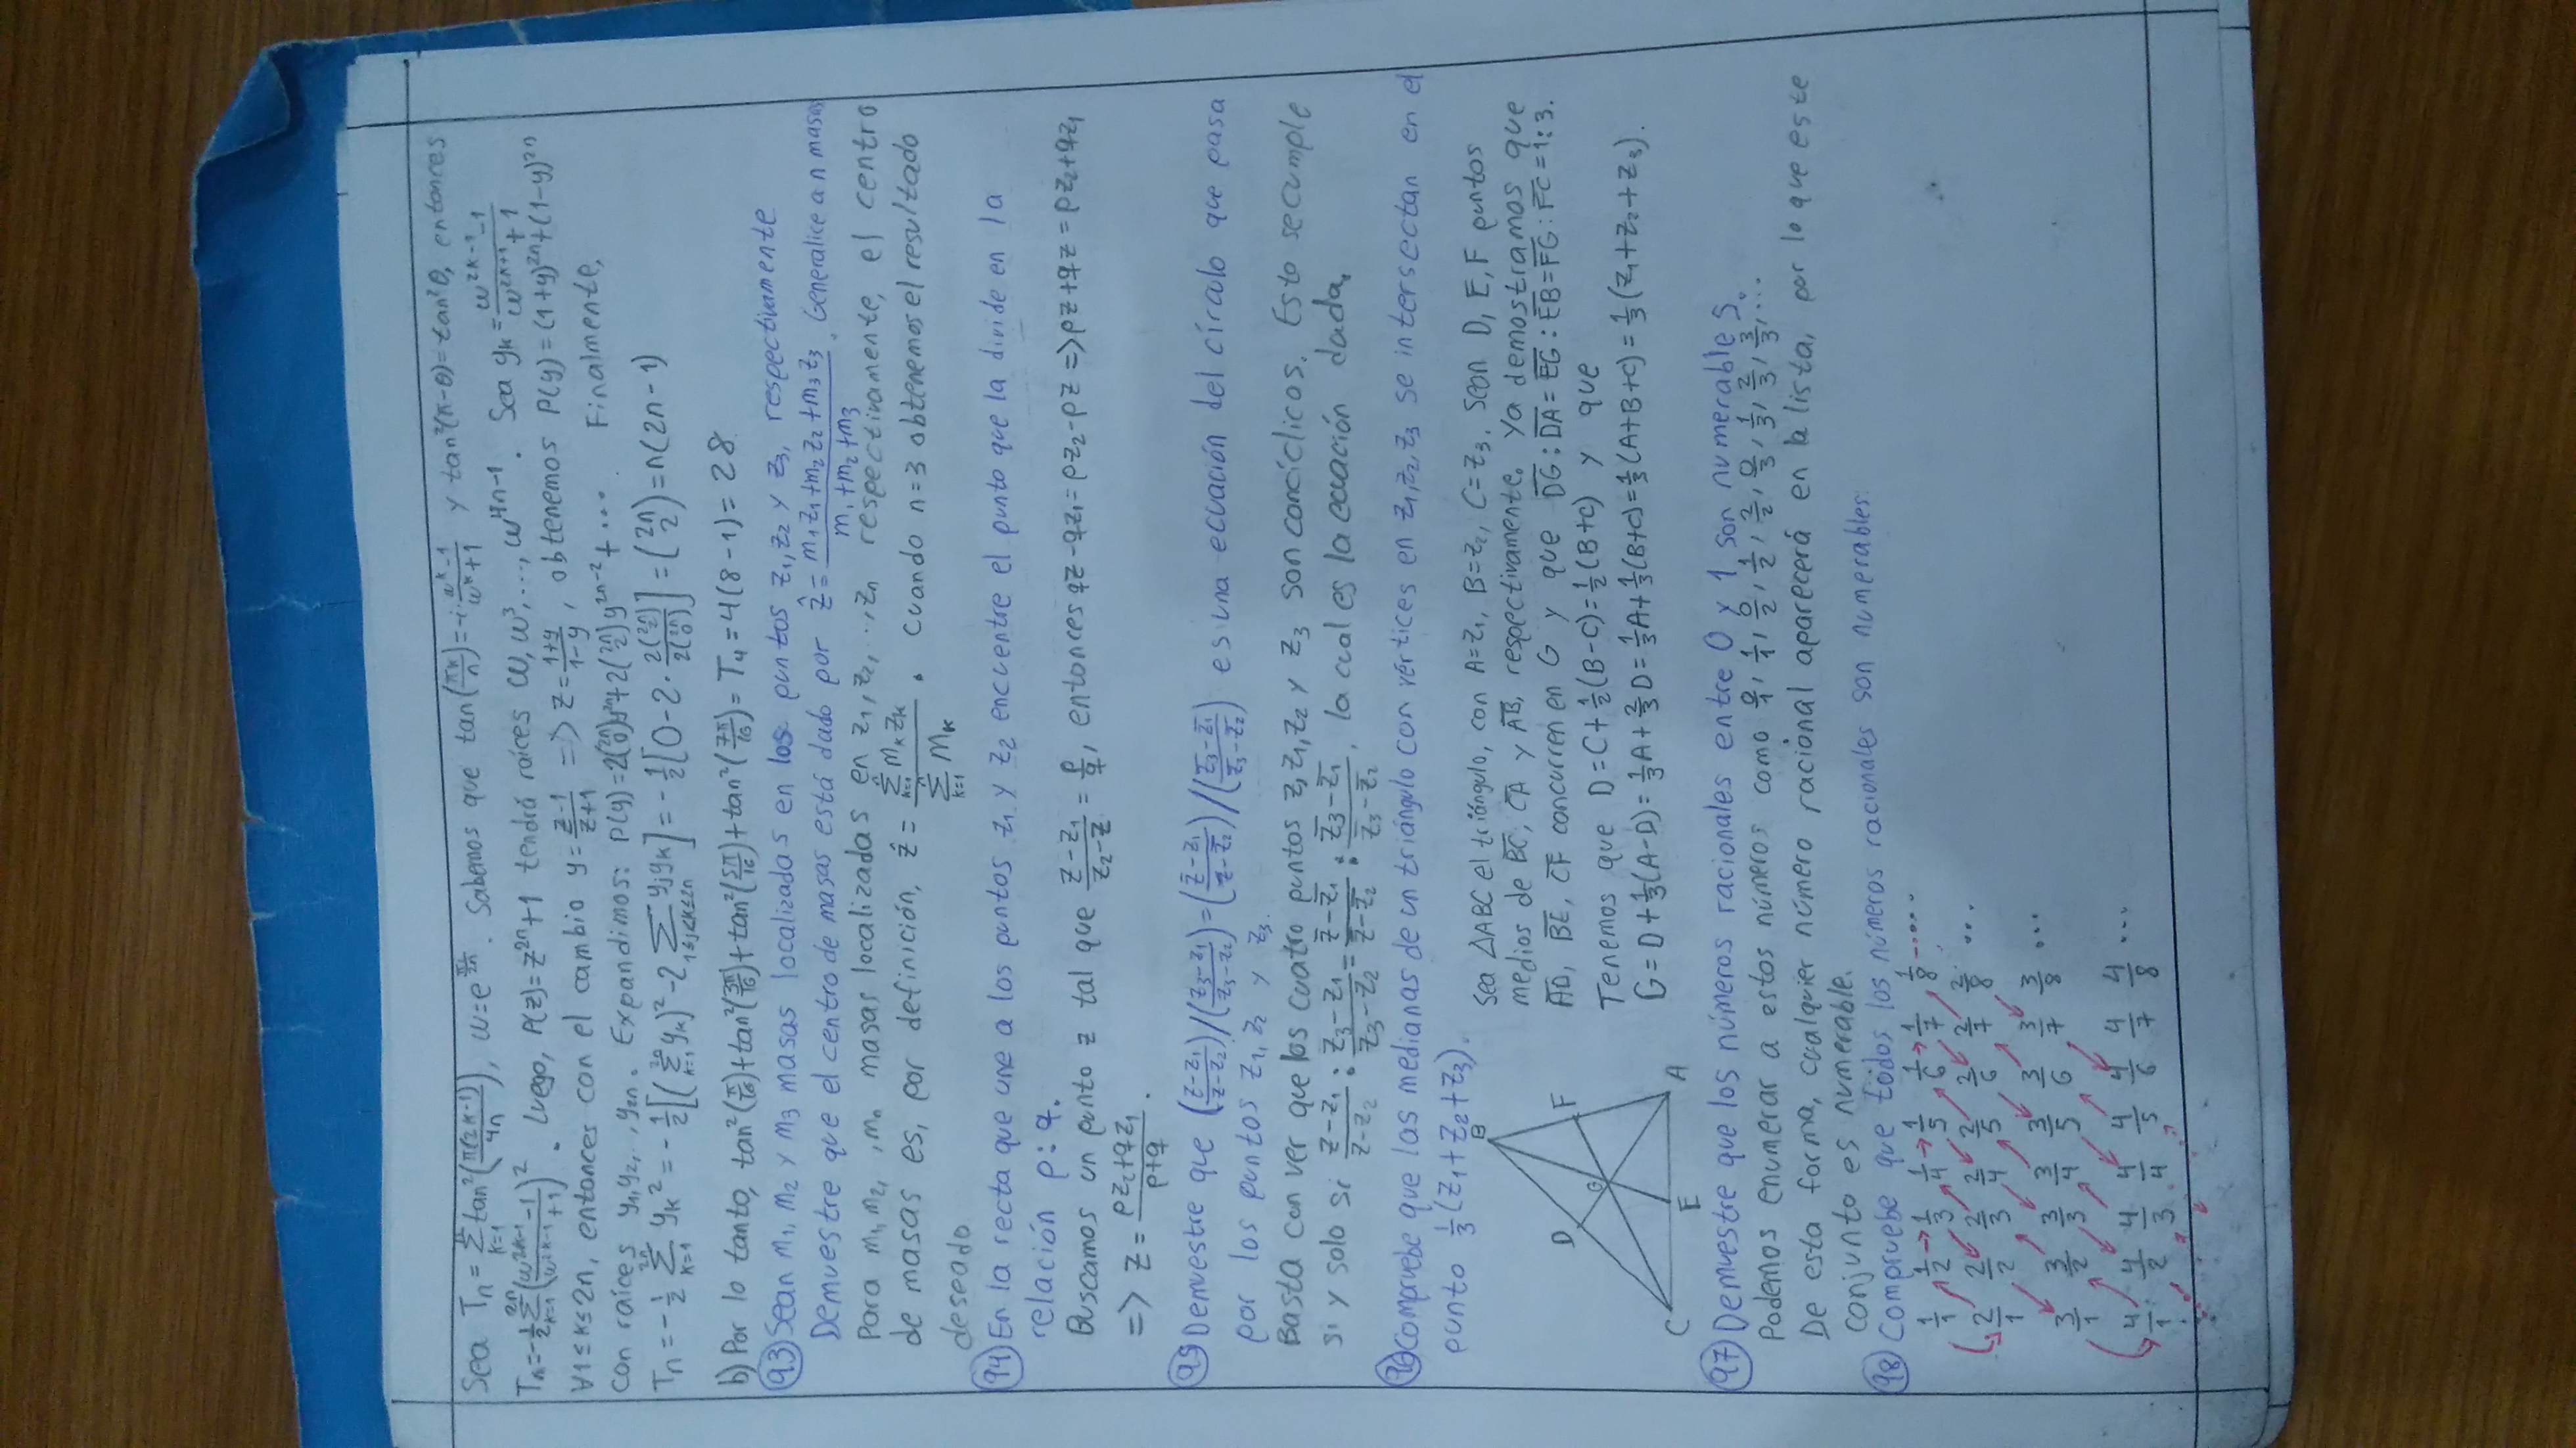 Sea Tn = Σ_{k=1}^{n} tan²(π(2k-1)/4n), ω = e^{πi/2n}. Sabemos que tan(πk/n) = -i·(ω^k-1)/(ω^k+1) y tan²(π-θ) = tan²θ, entonces
Tn = -1/2 Σ_{k=1}^{2n} ((ω^{2k-1}-1)/(ω^{2k-1}+1))². Luego, P(z) = z^{2n}+1 tendrá raíces ω, ω³, ..., ω^{4n-1}. Sea y_k = (ω^{2k-1}-1)/(ω^{2k+1}+1)
∀1≤k≤2n, entonces con el cambio y = (z-1)/(z+1) => z = (1+y)/(1-y), obtenemos P(y) = (1+y)^{2n}+(1-y)^{2n}
con raíces y₁, y₂, .., y₂ₙ. Expandimos: P(y) = 2(2n 0)y^{2n}+2(2n 2)y^{2n-2}+... Finalmente,
Tn = -1/2 Σ_{k=1}^{2n} y_k² = -1/2[(Σ_{k=1}^{2n} y_k)²-2 Σ_{1≤j<k≤2n} y_j y_k] = -1/2[0-2·2(2n 2)/2(2n 0)] = (2n 2) = n(2n-1)
b) Por lo tanto, tan²(π/16)+tan²(3π/16)+tan²(5π/16)+tan²(7π/16) = T₄ = 4(8-1) = 28
93 Sean m₁, m₂ y m₃ masas localizadas en los puntos z₁, z₂ y z₃, respectivamente
Demuestre que el centro de masas está dado por ẑ = (m₁z₁+m₂z₂+m₃z₃)/(m₁+m₂+m₃). Generalice a n masas
Para m₁, m₂, , mₙ masas localizadas en z₁, z₂, .., zₙ respectivamente, el centro
de masas es, por definición, ẑ = (Σ_{k=1}^{n} m_k z_k)/(Σ_{k=1}^{n} m_k). Cuando n=3 obtenemos el resultado
deseado
94 En la recta que une a los puntos z₁ y z₂ encuentre el punto que la divide en la
relación p:q.
Buscamos un punto z tal que (z-z₁)/(z₂-z) = p/q, entonces qz-qz₁ = pz₂-pz => pz+qz = pz₂+qz₁
=> z = (pz₂+qz₁)/(p+q).
95 Demuestre que ((z-z₁)/(z-z₂))/((z₃-z₁)/(z₃-z₂)) = ((z̄-z̄₁)/(z̄-z̄₂))/((z̄₃-z̄₁)/(z̄₃-z̄₂)) es una ecuación del círculo que pasa
por los puntos z₁, z₂ y z₃.
Basta con ver que los cuatro puntos z, z₁, z₂ y z₃ son concíclicos. Esto se cumple
si y solo si (z-z₁)/(z-z₂) : (z₃-z₁)/(z₃-z₂) = (z̄-z̄₁)/(z̄-z̄₂) : (z̄₃-z̄₁)/(z̄₃-z̄₂), la cual es la ecuación dada.
96 Compruebe que las medianas de un triángulo con vértices en z₁, z₂, z₃ se intersectan en el
punto 1/3(z₁+z₂+z₃).
B
D
F
G
C
E
A
Sea △ABC el triángulo, con A=z₁, B=z₂, C=z₃. Sean D, E, F puntos
medios de B̅C̅, C̅A̅ y A̅B̅, respectivamente. Ya demostramos que
A̅D̅, B̅E̅, C̅F̅ concurren en G y que D̅G̅:D̅A̅ = E̅G̅:E̅B̅ = F̅G̅:F̅C̅ = 1:3.
Tenemos que D = C+1/2(B-C) = 1/2(B+C) y que
G = D+1/3(A-D) = 1/3A+2/3D = 1/3A+1/3(B+C) = 1/3(A+B+C) = 1/3(z₁+z₂+z₃).
97 Demuestre que los números racionales entre 0 y 1 son numerables.
Podemos enumerar a estos números como 0/1, 1/1, 0/2, 1/2, 2/2, 0/3, 1/3, 2/3, 3/3, ...
De esta forma, cualquier número racional aparecerá en la lista, por lo que este
conjunto es numerable.
98 Compruebe que todos los números racionales son numerables.
1/1 1/2 → 1/3 1/4 → 1/5 1/6 → 1/7 1/8 ...
2/1 2/2 2/3 2/4 2/5 2/6 2/7 2/8 ...
3/1 3/2 3/3 3/4 3/5 3/6 3/7 3/8 ...
4/1 4/2 4/3 4/4 4/5 4/6 4/7 4/8 ...